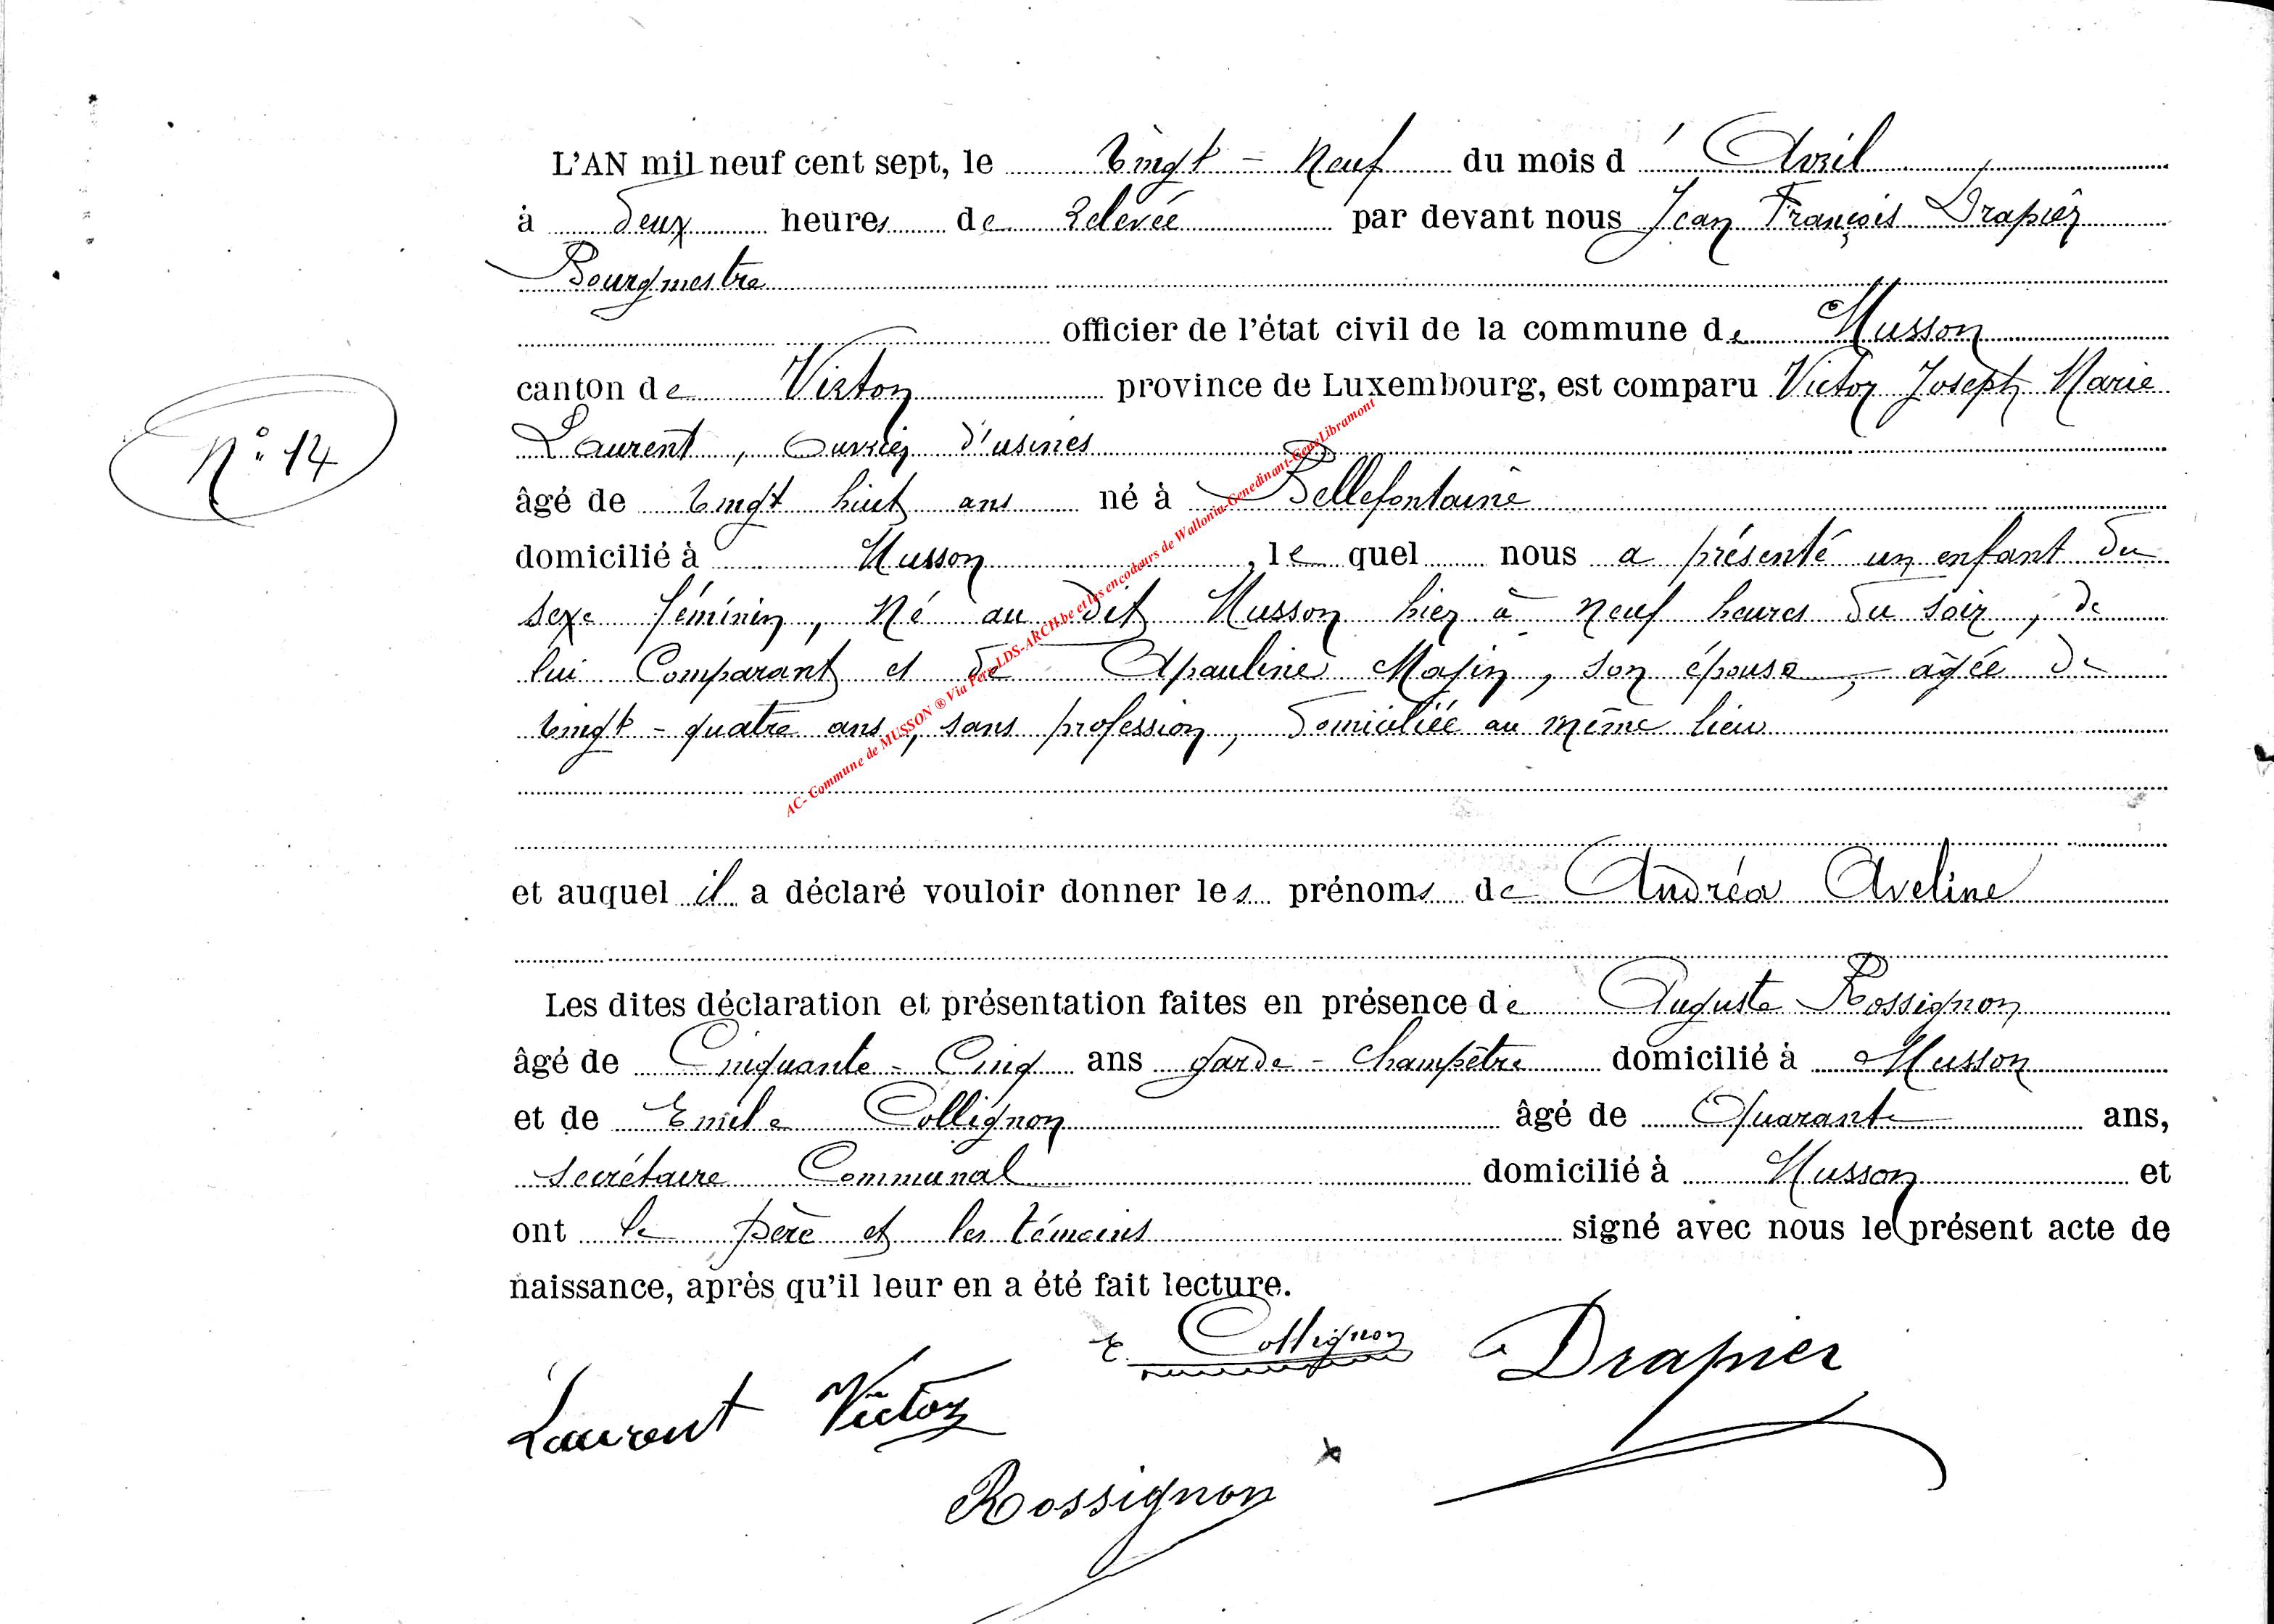 L'AN mil neuf cent sept, le Vingt - Neuf du mois d' Avril
à deux heures de relevée par devant nous Jean François Drapier
Bourgmestre
officier de l'état civil de la commune de Musson
N° 14
canton de Virton province de Luxembourg, est comparu Victor Joseph Marie
Laurent, Ouvrier d'usines
âgé de Vingt huit ans né à Bellefontaine
domicilié à Musson, le quel nous a présenté un enfant du
sexe féminin, Né au dit Musson hier à neuf heures du soir, de
lui Comparant et de Apauline Majin, son épouse, âgée de
Vingt - quatre ans, sans profession, domiciliée au même lieu
AC- Commune de MUSSON ® Via Père-LDS-ARCH.be et les encodeurs de Wallonia-Genedinant-GeneLibramont
et auquel il a déclaré vouloir donner les prénoms de Andréa Aveline
Les dites déclaration et présentation faites en présence de Auguste Rossignon
âgé de Cinquante - Cinq ans garde - Champêtre domicilié à Musson
et de Emile Collignon âgé de Quarante ans,
secrétaire Communal domicilié à Musson et
ont le père et les témoins signé avec nous le présent acte de
naissance, après qu'il leur en a été fait lecture.
E. Collignon Drapier
Laurent Victor
Rossignon